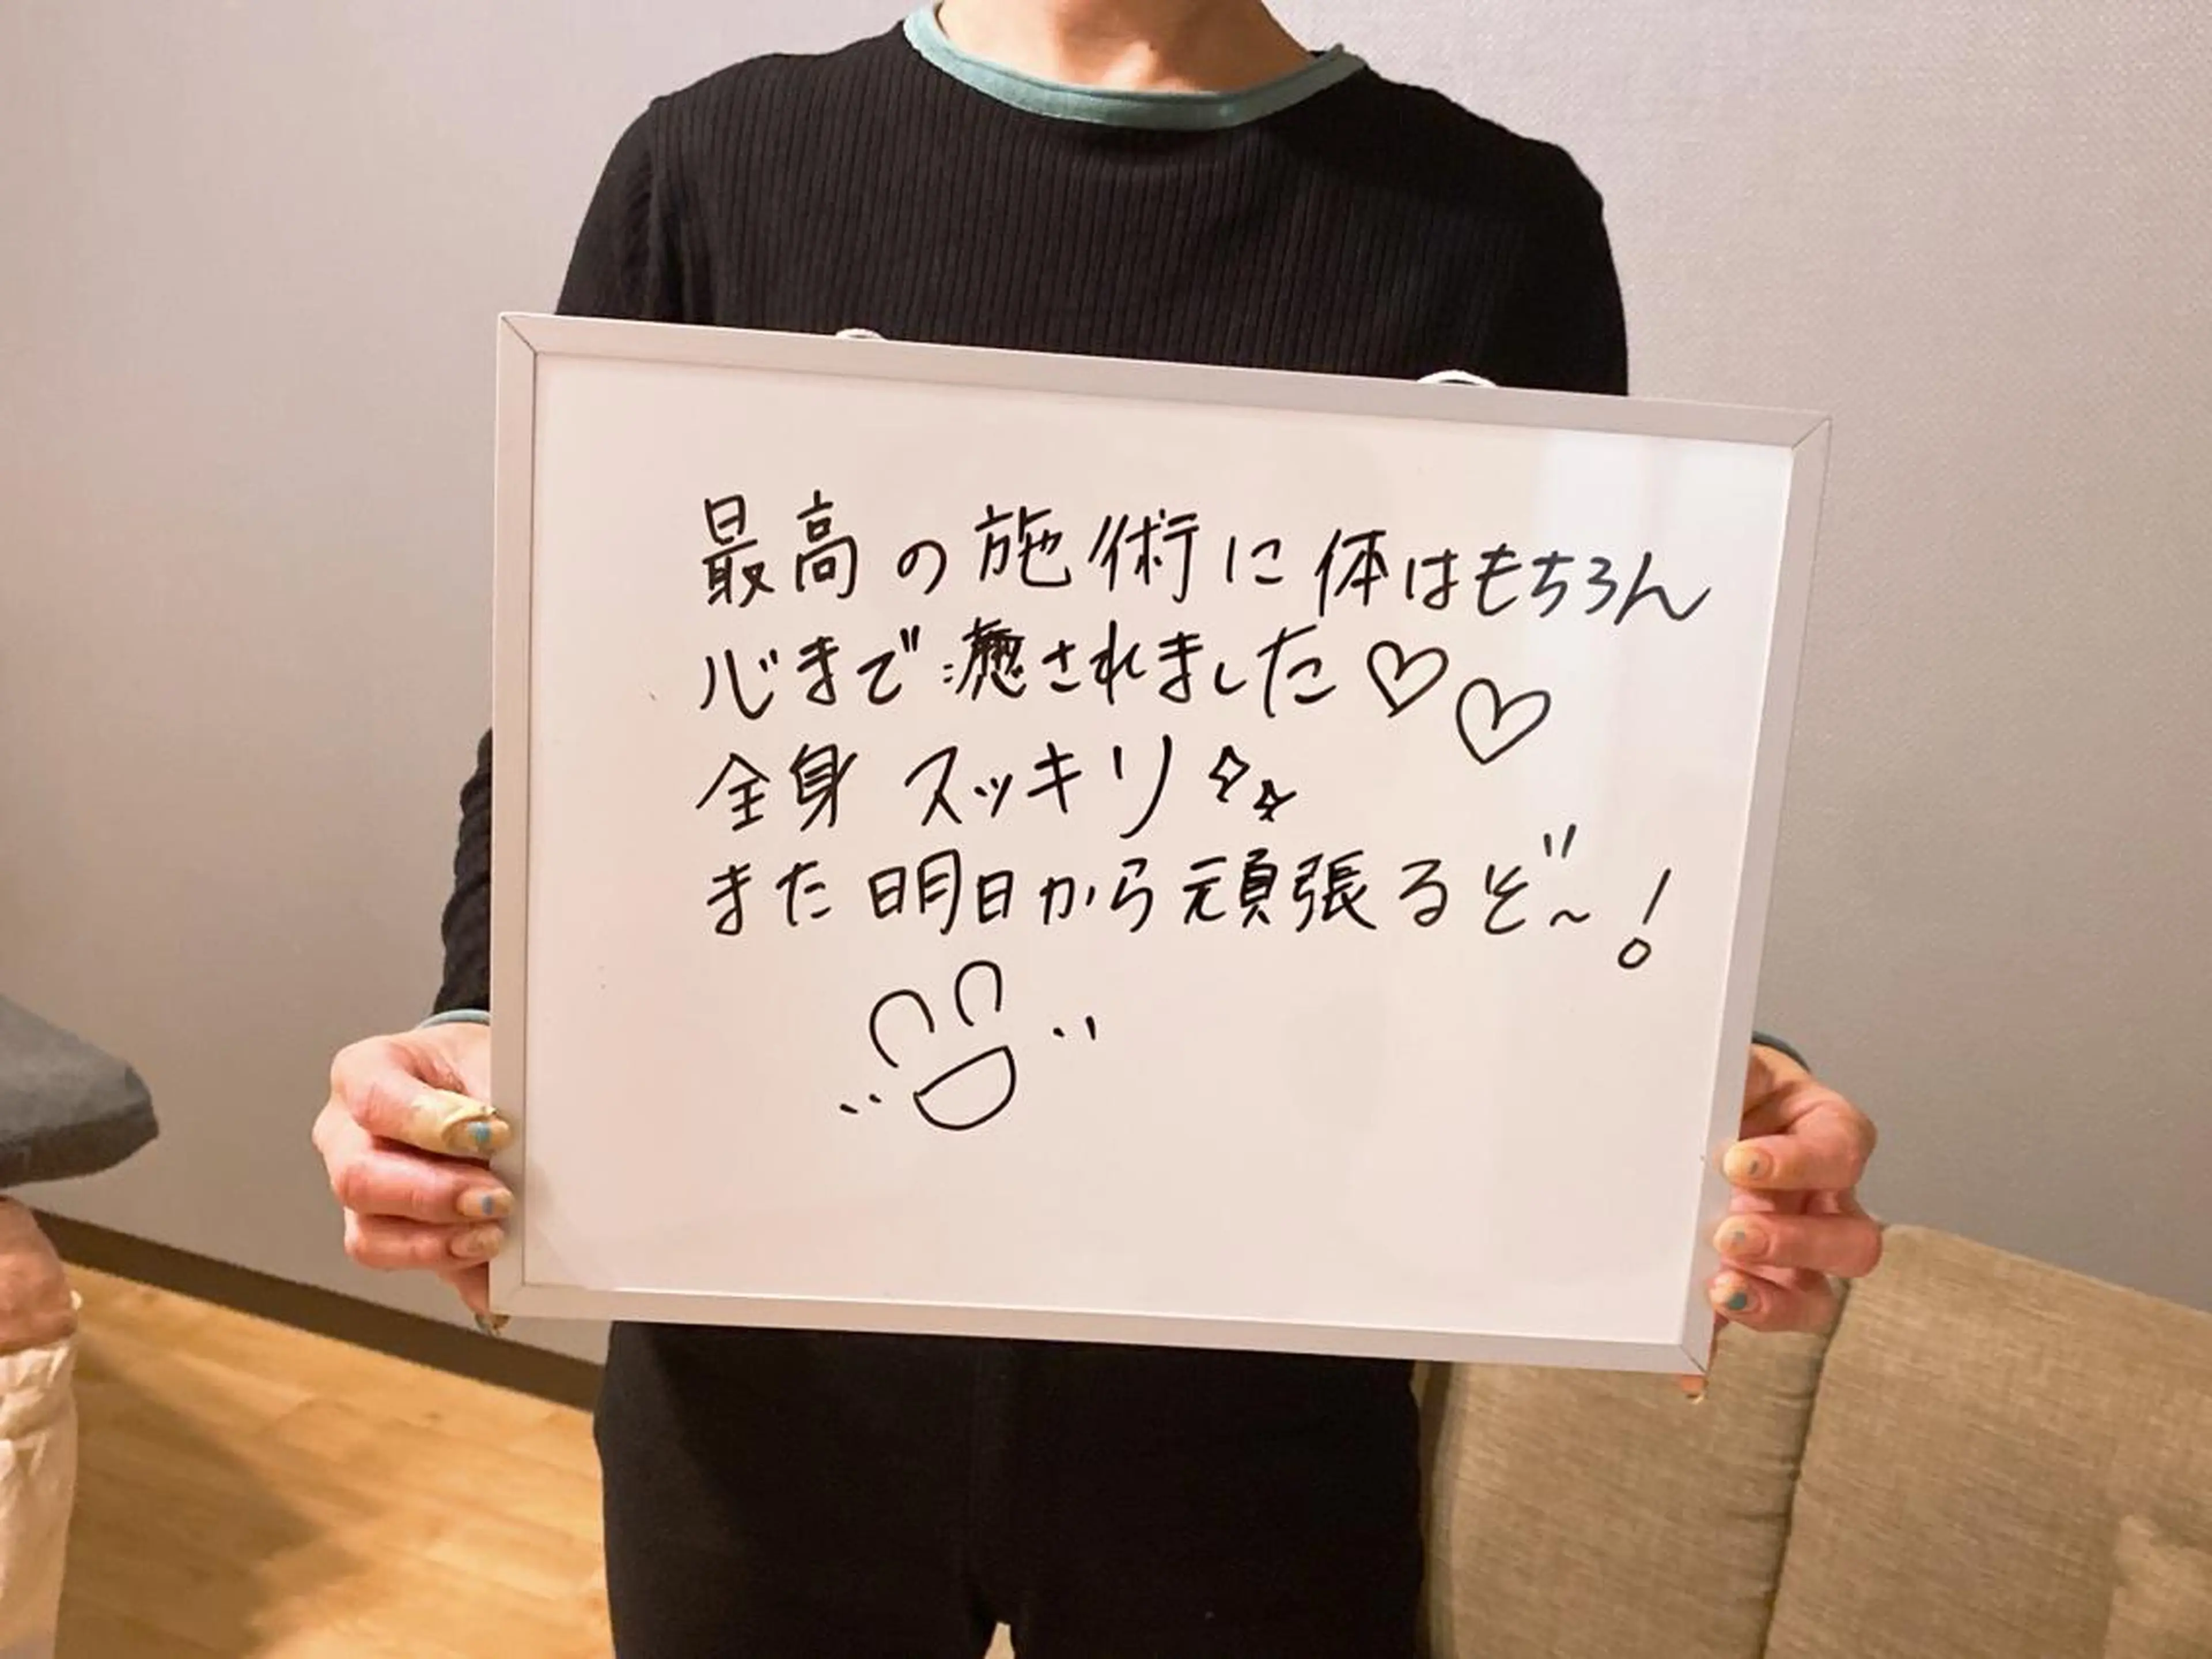 最高の施術に体はもちろん
心まで癒されました♡♡
全身スッキリ✧✧
また明日から頑張るぞ〜!